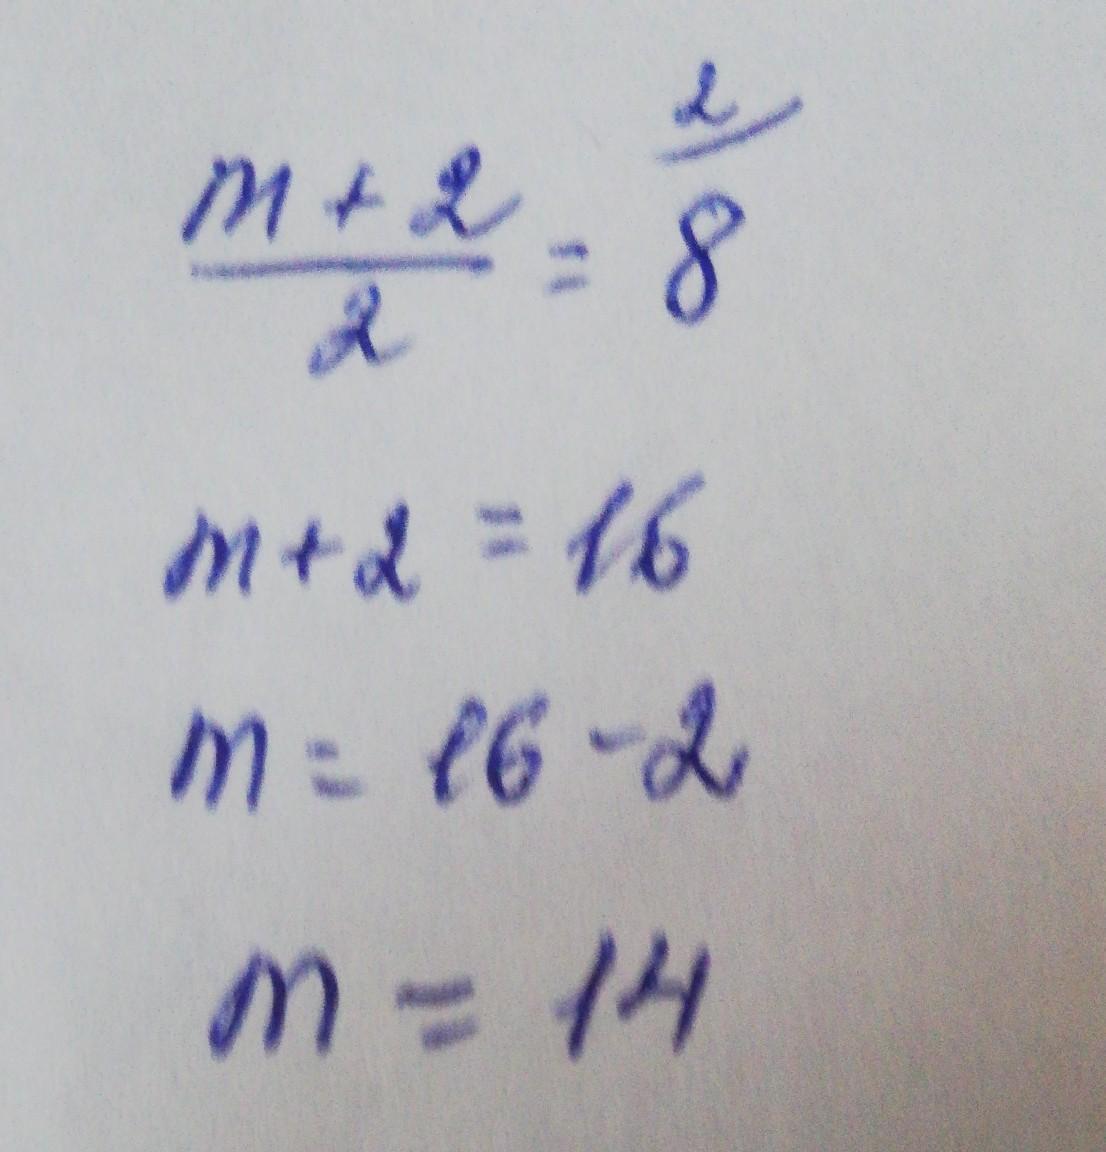 m + 2 / 2 = 2 / 8
m + 2 = 16
m = 16 - 2
m = 14